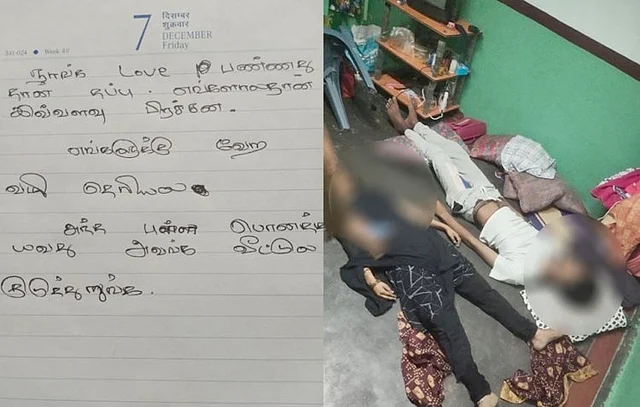 7
दिसम्बर
शुक्रवार
DECEMBER
Friday
341-024 • Week 49
நாங்க Love பண்ணது
தான் தப்பு. எங்களாலதான்
இவ்வளவு பிரச்சன.
எங்களுக்கு வேற
வழி தெரியல
அந்த புள்ள
அவங்க வீட்டுல
குடுத்துருங்க.